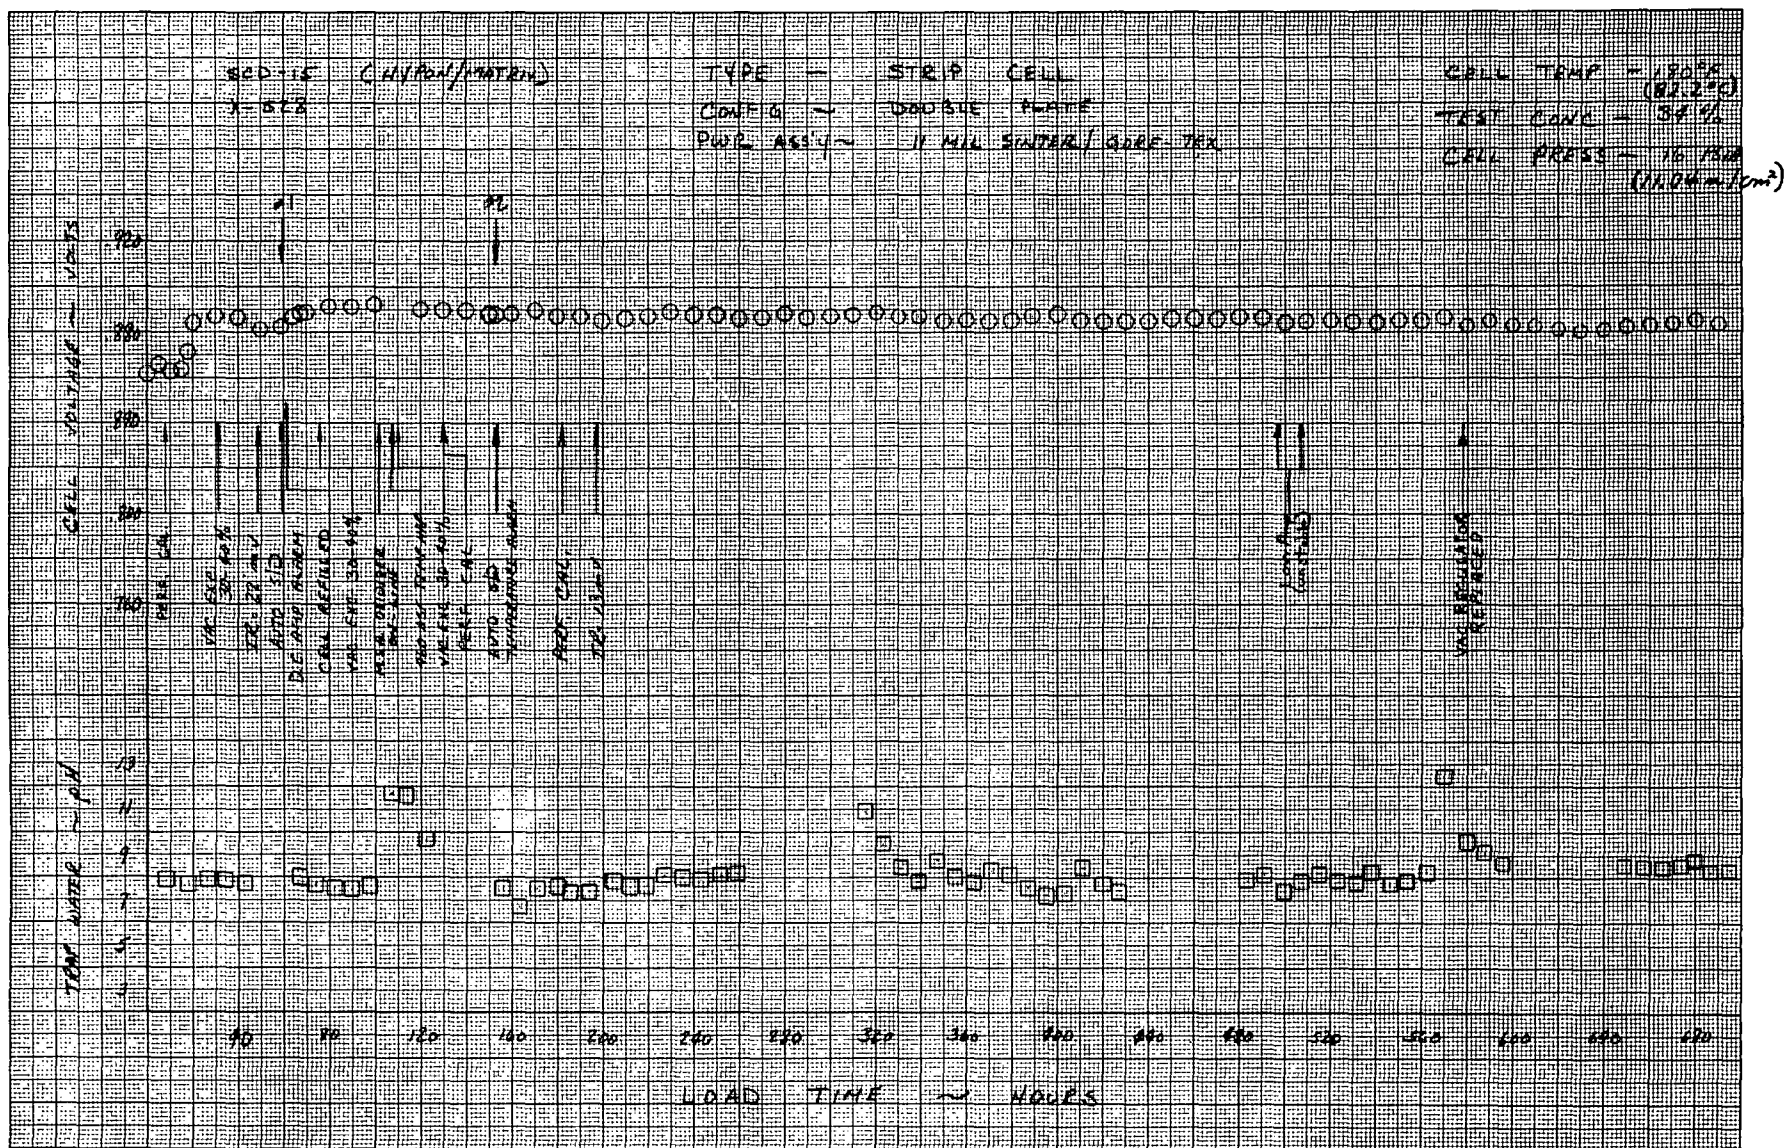 SCD-15 (HYPON/MATRIX)
X-528
TYPE — STRIP CELL
CONFIG ~ DOUBLE PLATE
PWR ASS'Y ~ 11 MIL SINTER/GORE-TEX
CELL TEMP - 180°F
(82.2°C)
TEST CONC - 34%
CELL PRESS - 16 PSIA
(11.04 n/cm²)
CELL VOLTAGE ~ VOLTS
.920
.880
.840
.800
.760
PERF. CAL
VAC EXC
30-40%
AUTO S/D
CELL REFILLED
VAC EXC 30-40%
ON-LINE
VAC EXC 30-40%
PERF. CAL
AUTO S/D
TEMPERATURE ALARM
PERF CAL.
(unstable)
VAC REGULATOR
REPLACED
TRAP WATER ~ pH
13
11
9
7
5
3
40 80 120 160 200 240 280 320 360 400 440 480 520 560 600 640 680
LOAD TIME ~ HOURS